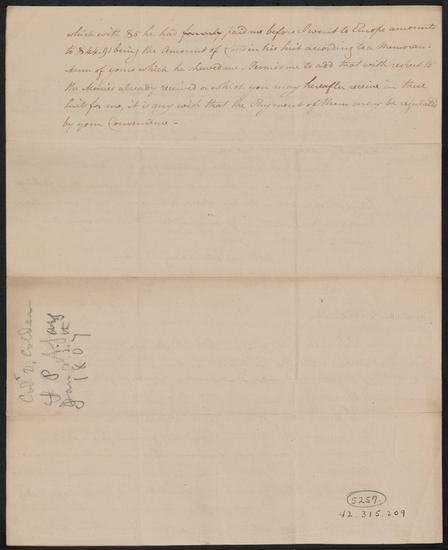 which with $5 he had formerly paid me before I went to Europe amounts
to $44.91 being the Amount of Costs in his suit according to a Memoran-
dum of yours which he shewed me. Permit me to add that with respect to
the Monies already received or which you may hereafter receive in these
suits for me, it is my wish that the Payment of them may be regulated
by your Convenience -
Cadr. D. Colden
P. A. Jay
Jan. 5th
1807
5257.
42.315.209